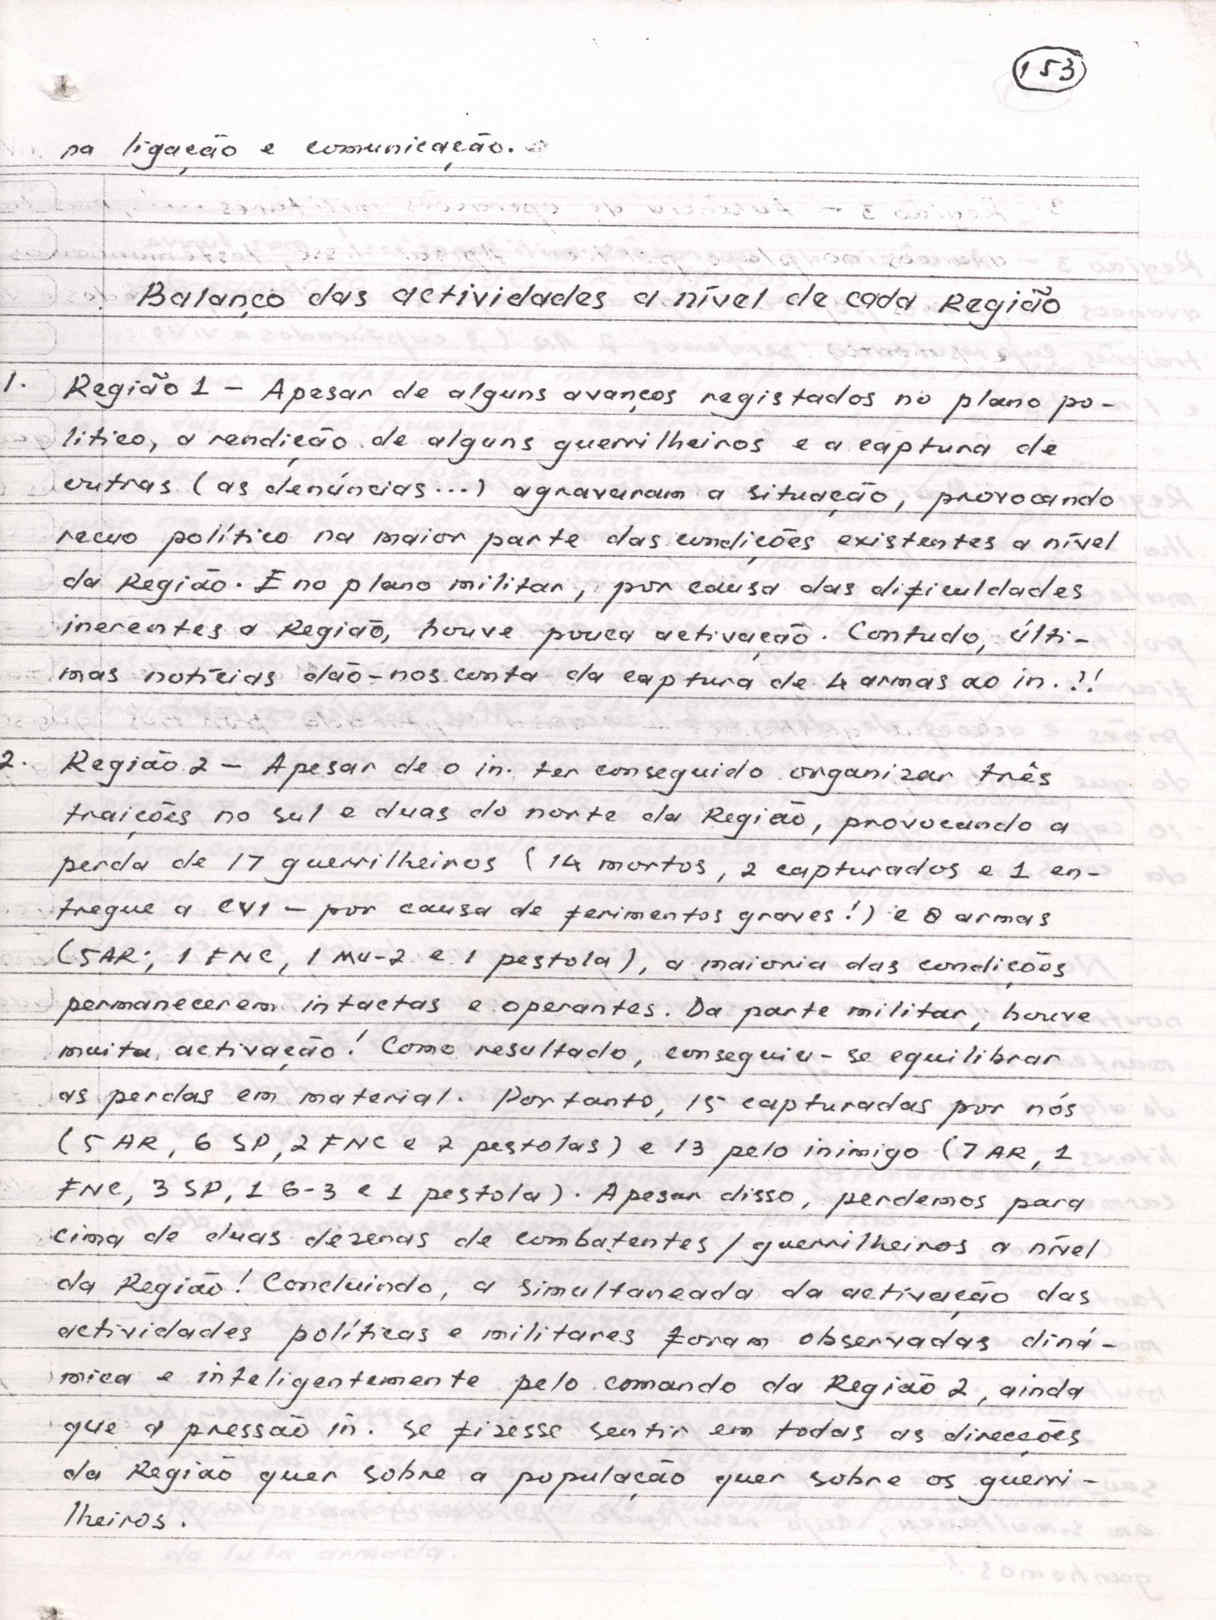 153
na ligação e comunicação.
Balanço das actividades a nível de cada Região
1. Região 1 – Apesar de alguns avanços registados no plano po-
lítico, a rendição de alguns guerrilheiros e a captura de
outras (as denúncias...) agravaram a situação, provocando
recuo político na maior parte das condições existentes a nível
da Região. E no plano militar, por causa das dificuldades
inerentes a Região, houve pouca activação. Contudo, últi-
mas notícias dão-nos conta da captura de 4 armas ao in.?!
2. Região 2 – Apesar de o in. ter conseguido organizar três
traições no sul e duas do norte da Região, provocando a
perda de 17 guerrilheiros (14 mortos, 2 capturados e 1 en-
tregue a CVI – por causa de ferimentos graves!) e 8 armas
(5AR, 1 FNC, 1 MU-2 e 1 pestola), a maioria das condiçõos
permanecerem intactas e operantes. Da parte militar, houve
muita activação! Como resultado, conseguiu-se equilibrar
as perdas em material. Portanto, 15 capturadas por nós
(5 AR, 6 SP, 2 FNC e 2 pestolas) e 13 pelo inimigo (7 AR, 1
FNC, 3 SP, 1 G-3 e 1 pestola). Apesar disso, perdemos para
cima de duas dezenas de combatentes/guerrilheiros a nível
da Região! Concluindo, a simultaneada da activação das
actividades políticas e militares foram observadas diná-
mica e inteligentemente pelo comando da Região 2, ainda
que a pressão in. se fizesse sentir em todas as direcções
da Região quer sobre a população quer sobre os guerri-
lheiros.